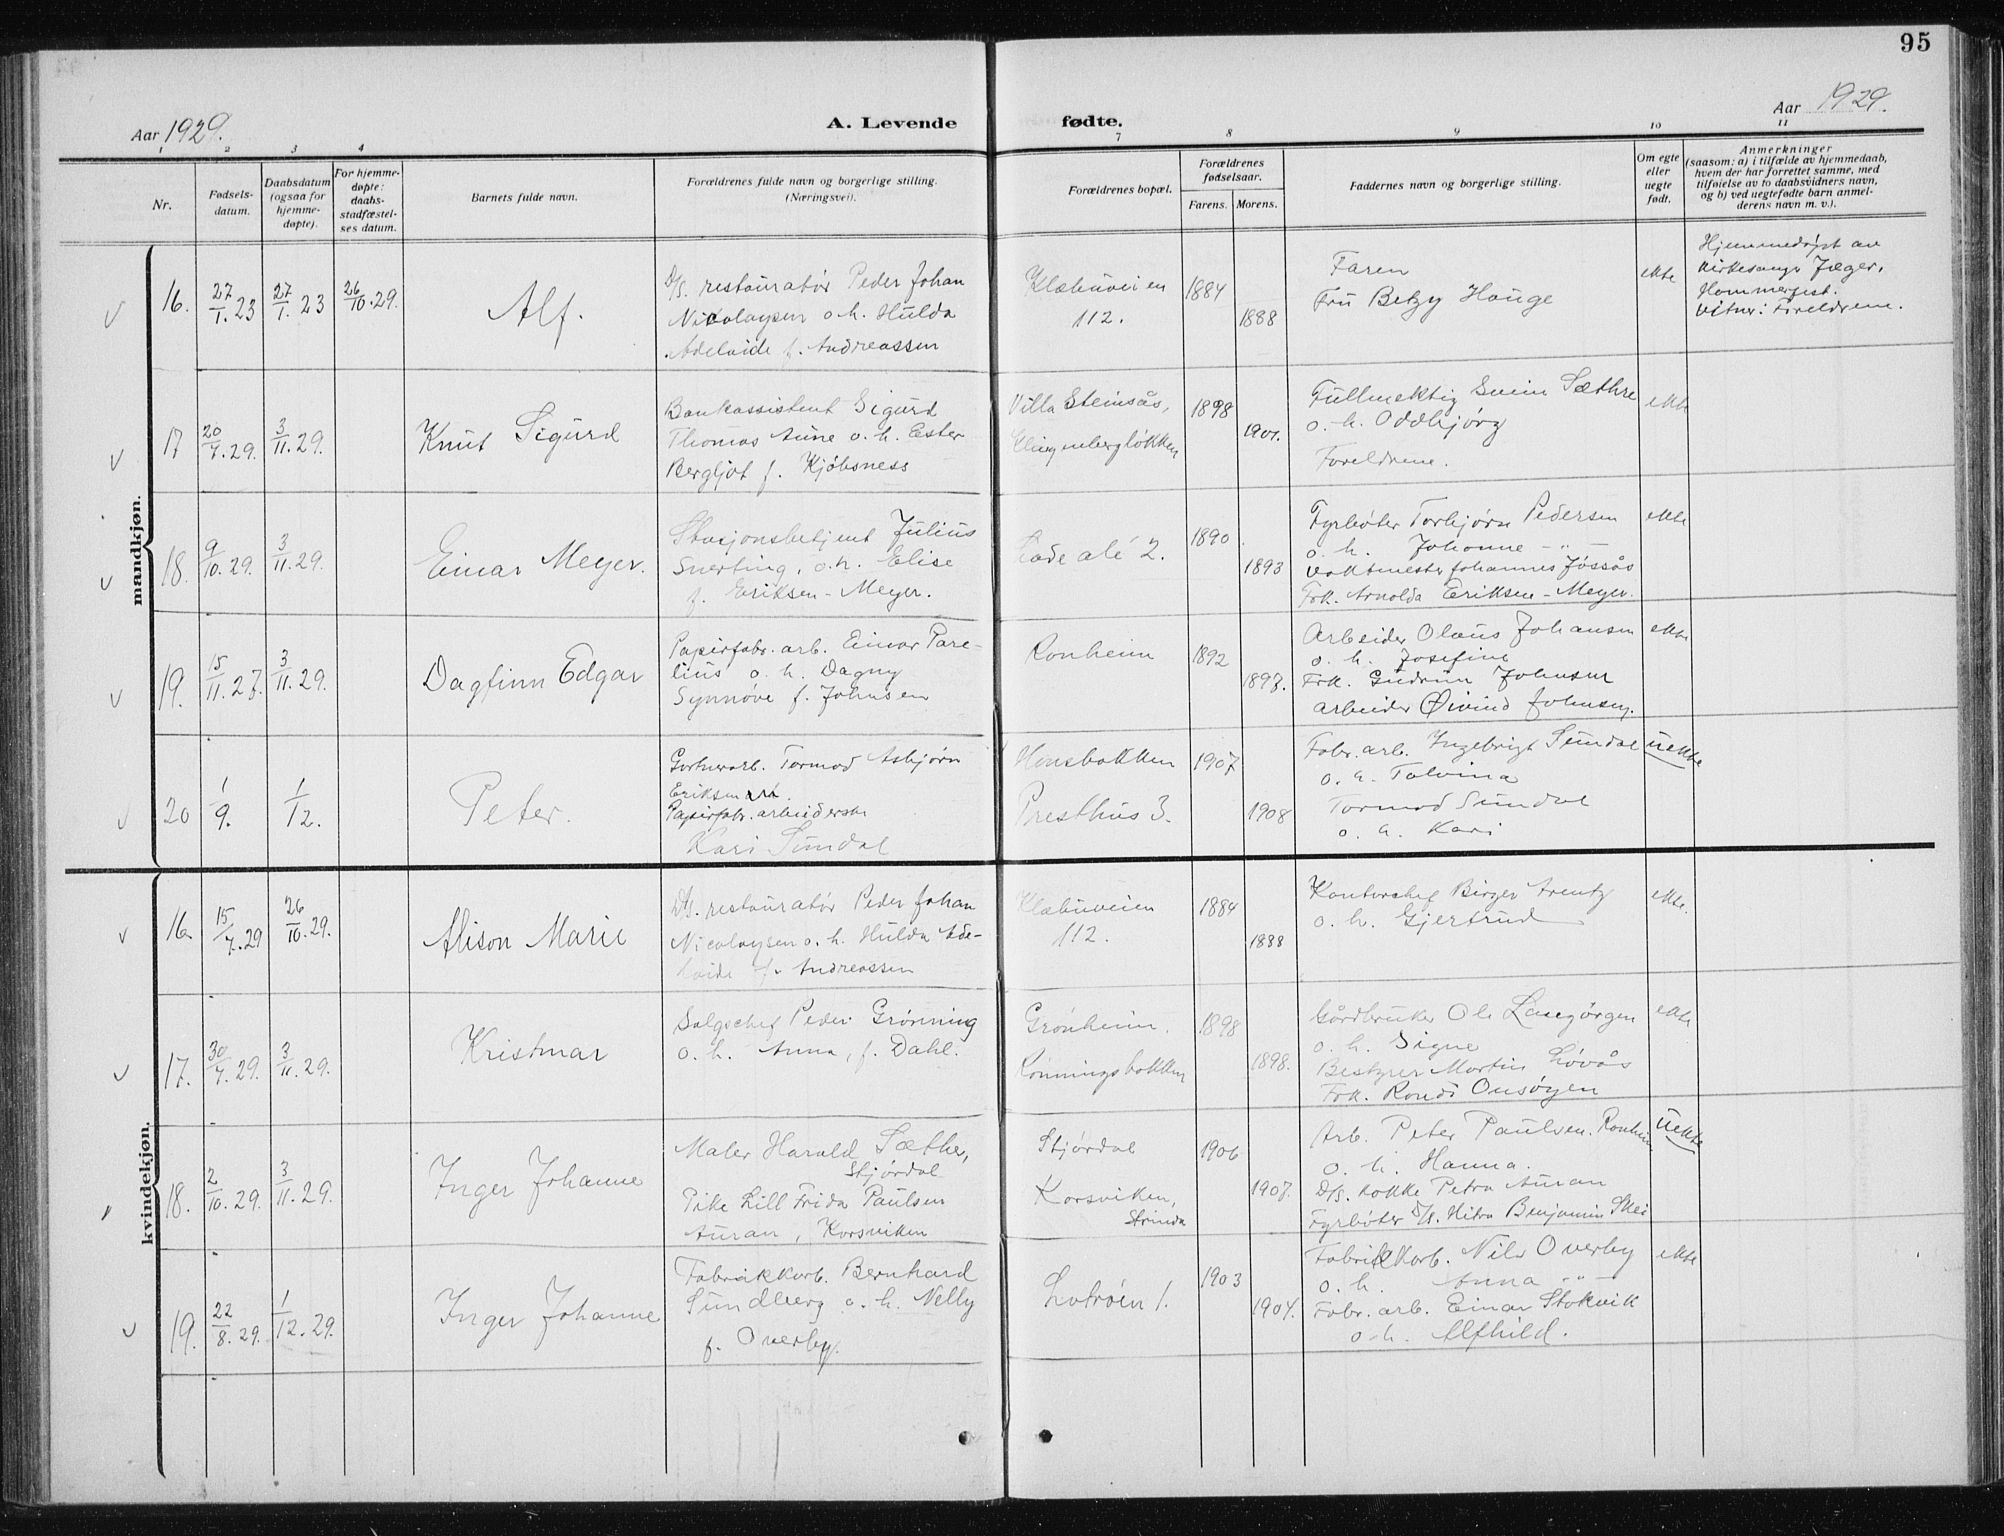 95
Aar 1929.
A. Levende fødte.
Aar 1929.
1 2 3 4 7 8 9 10 11
Nr.
Fødsels-
datum.
Daabsdatum
(ogsaa for
hjemme-
døpte).
For hjemme-
døpte:
daabs-
stadfæstel-
ses datum.
Barnets fulde navn.
Forældrenes fulde navn og borgerlige stilling.
(Næringsvei).
Forældrenes bopæl.
Forældrenes
fødselsaar.
Farens. Morens.
Faddernes navn og borgerlige stilling.
Om egte
eller
uegte
født.
Anmerkninger
(saasom: a) i tilfælde av hjemmedaab,
hvem der har forrettet samme, med
tilføielse av to daabsvidners navn,
og b) ved uegtefødte barn anmel-
derens navn m. v.).
mandkjøn.
16. 27/1.23 27/1.23 26/10.29. Alf.
D/S. restauratør Peder Johan
Nicolaysen o. h. Hulda
Adelaide f. Andreassen
Klæbuveien
112.
1884 1888
Faren
Fru Betzy Hauge
ekte
Hjemmedøpt av
kirkesangr Jæger,
Hammerfest.
Vitner: Foreldrene.
17 20/7.29. 3/11.29. Knut Sigurd
Bankassistent Sigurd
Thomas Aune o. h. Ester
Bergljot f. Kjøbsness
Villa Steinsås,
Klingenbergløkken
1898 1901.
Fullmektig Svein Sæthre
o. h. Oddbjørg
Foreldrene.
ekte
18. 9/10.29. 3/11.29. Einar Meyer.
Stasjonsbetjent Julius
Snerting, o. h. Elise
f. Eriksen-Meyer.
Lade alé 2.
1890 1893
Fyrbøter Torbjørn Pedersen
o. h. Johanne -„-
Vaktmester Johannes Jøssås
Frk. Arnolda Eriksen-Meyer.
ekte
19. 15/11.27. 3/11.29. Dagfinn Edgar
Papirfabr. arb. Einar Pare-
lius o. h. Dagny
Synnøve f. Johnsen
Ronheim
1892 1893.
Arbeider Olaus Johansen
o. h. Josefine
Frk. Gudrun Johnsen
arbeider Øivind Johnsen.
ekte
20 1/9. 1/12. Peter.
Gartnerarb. Tormod Asbjørn
Eriksen
Papirfabr. arbeiderske
Kari Sundal
Hansbakken
Presthus 3.
1907 1908
Fabr. arb. Ingebrigt Sundal
o. h. Talvina
Tormod Sundal
o. h. Kari
uekte
kvindekjøn.
16. 15/7.29 26/10.29. Alison Marie
D/S. restauratør Peder Johan
Nicolaysen o. h. Hulda Ade-
laide f. Andreassen
Klæbuveien
112.
1884 1888
Kontorchef Birger Arentz
o. h. Gjertrud
ekte.
17. 30/7.29. 3/11.29. Kristmar
Salgschef Peder Grønning
o. h. Anna, f. Dahl.
Grønheim.
Rønningsbakken
1898 1898.
Gårdbruker Ole Langørgen
o. h. Signe
Bestyrer Martin Løvås
Frk. Randi Onsøyen
ekte
18. 2/10.29. 3/11.29. Inger Johanne
Maler Harald Sæther,
Stjørdal
Pike Lill Frida Paulsen
Auran, Korsviken
Stjørdal
Korsviken,
Strinda
1906 1907.
Arb. Peter Paulsen. Ronheim
o. h. Hanna.
D/S. kokke Petra Auran
Fyrbøter D/S. Hitra Benjamin Skei
uekte
19. 22/8.29. 1/12.29. Inger Johanne
Fabrikkarb. Bernhard
Sundberg o. h. Nelly
f. Overby.
Ladrøen 1.
1903 1904.
Fabrikkarb. Nils Overby
o. h. Anna -„-
Fabr. arb. Einar Stokvik
o. h. Alfhild.
ekte